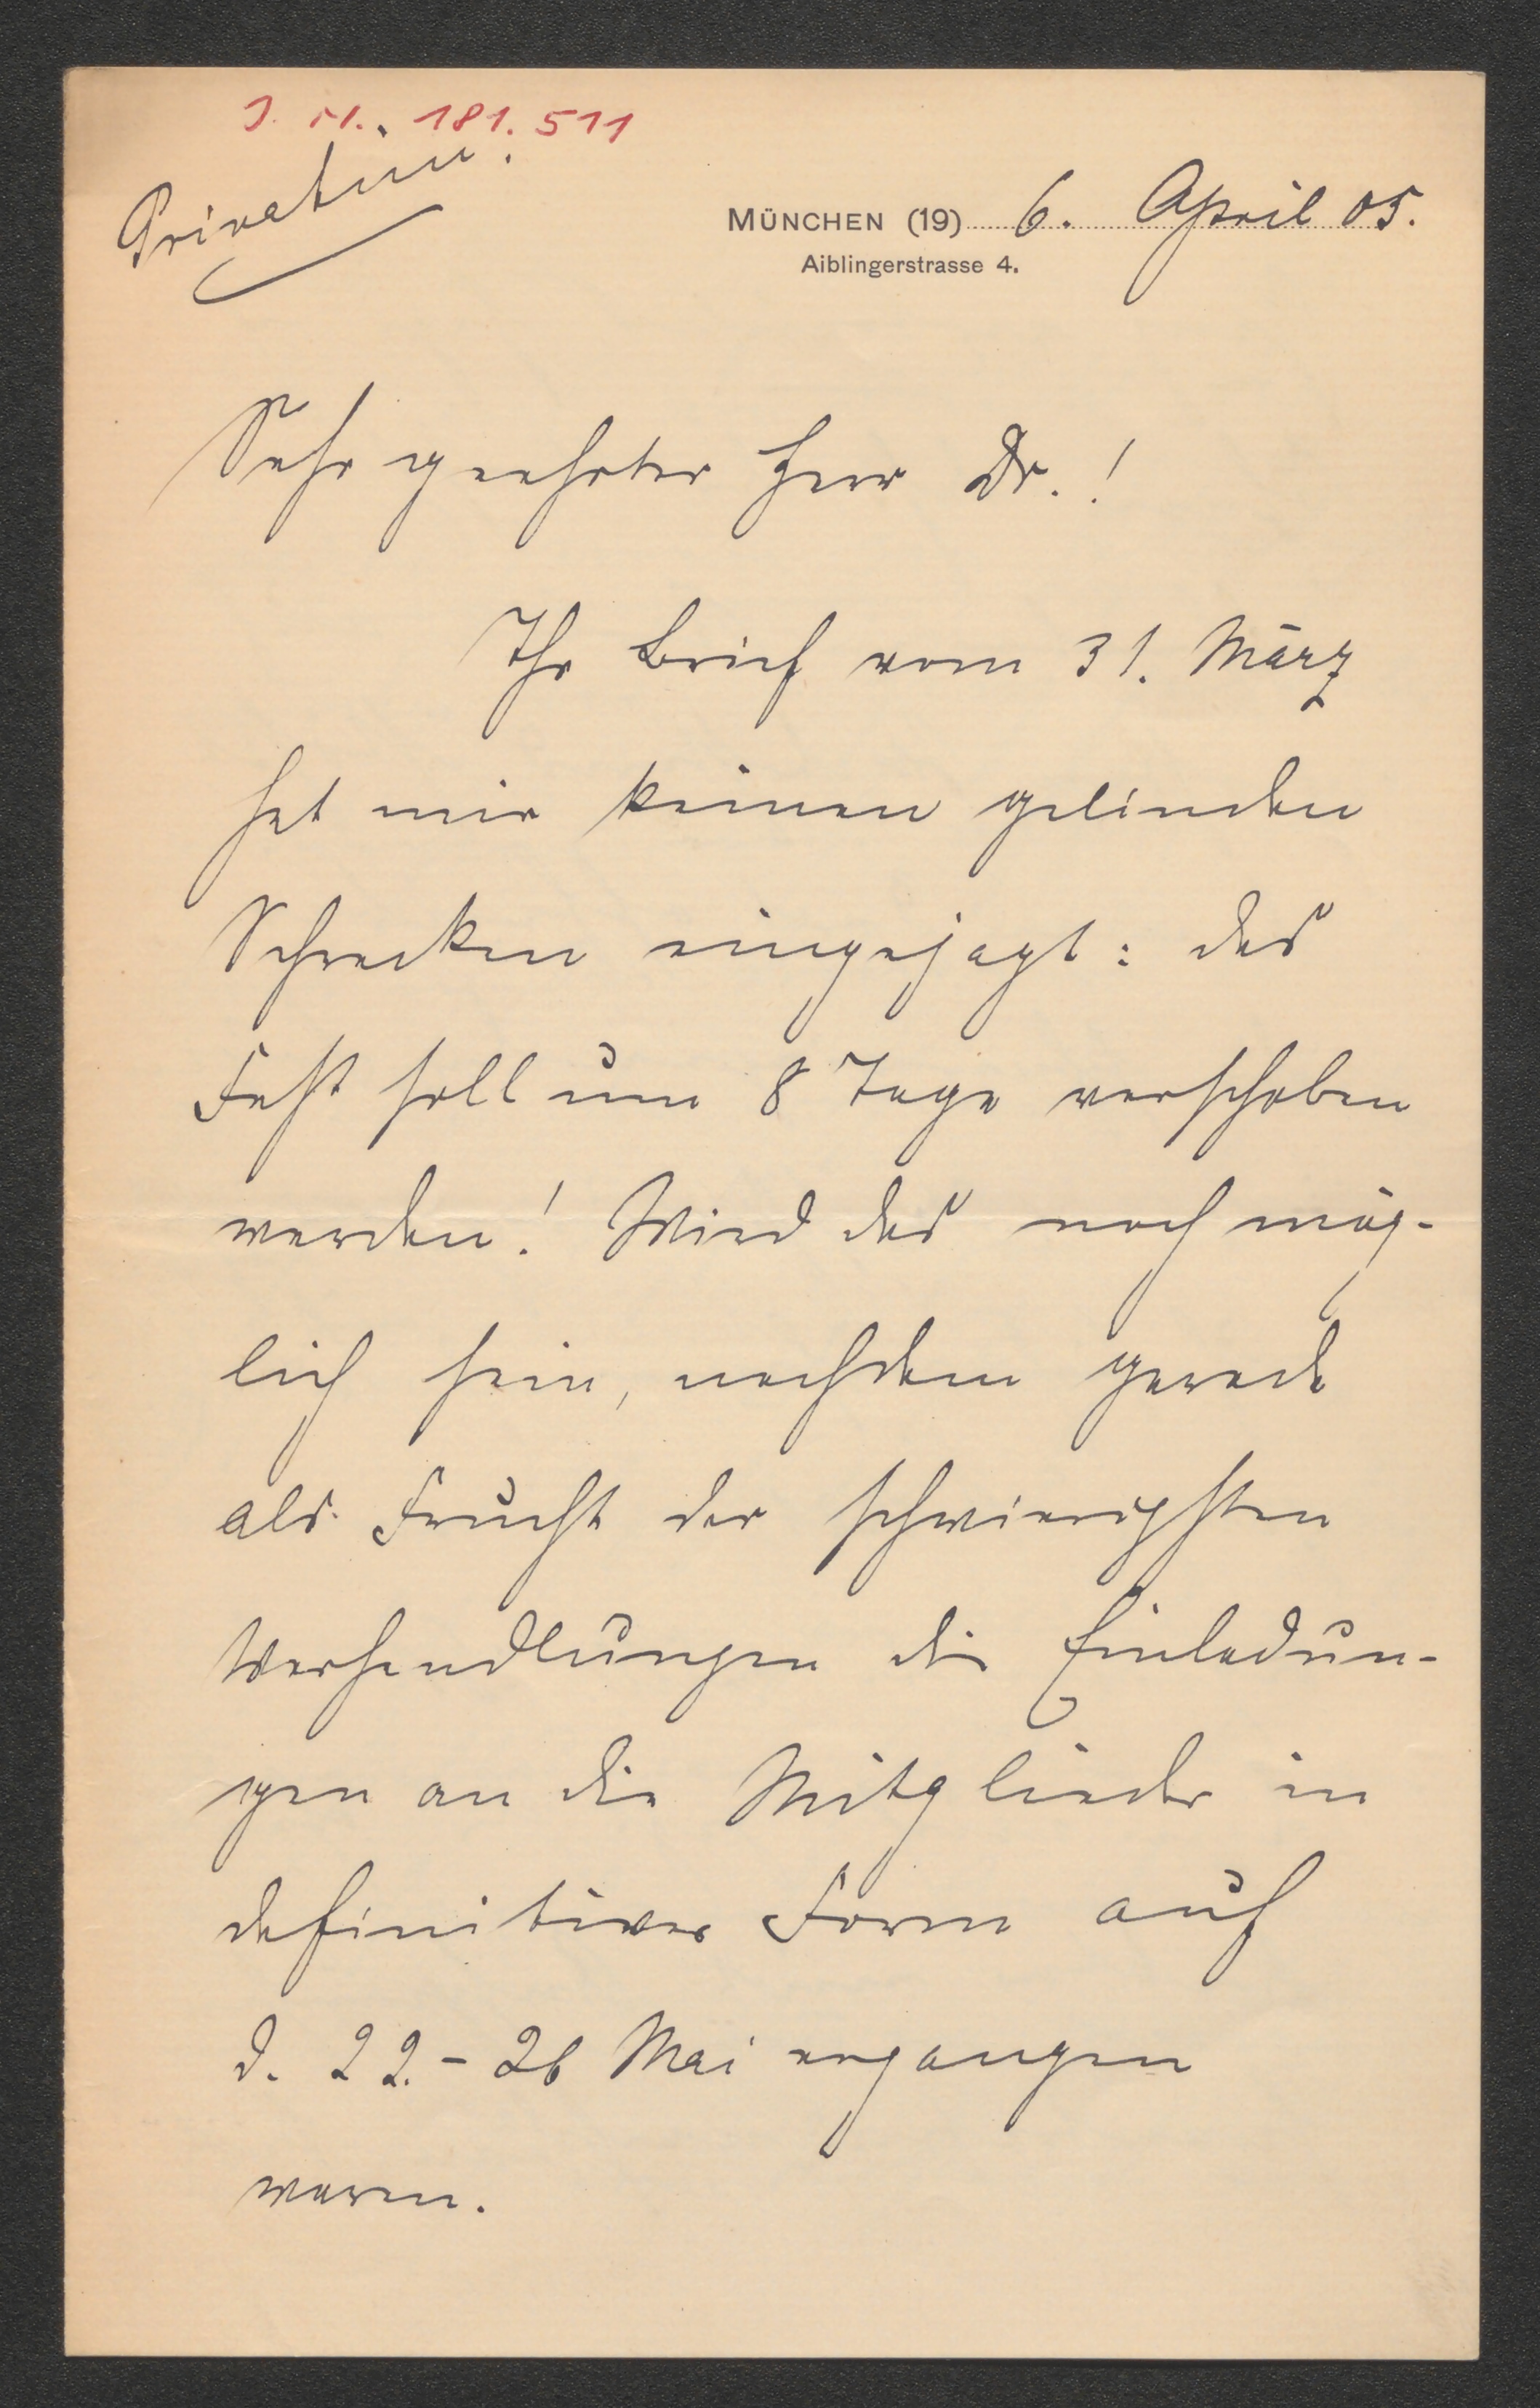 J. N. 181.511
Privatim.
MÜNCHEN (19) 6. April 05.
Aiblingerstrasse 4.
Sehr geehrter Herr Dr.!
Ihr Brief vom 31. März
hat mir keinen gelinden
Schrecken eingejagt: das
Fest soll um 8 Tage verschoben
werden! Wird das noch mög-
lich sein, nachdem gerade
als Frucht der schwierigsten
Verhandlungen die Einladun-
gen an die Mitglieder in
definitiver Form auf
d. 22.-26 Mai ergangen
waren.